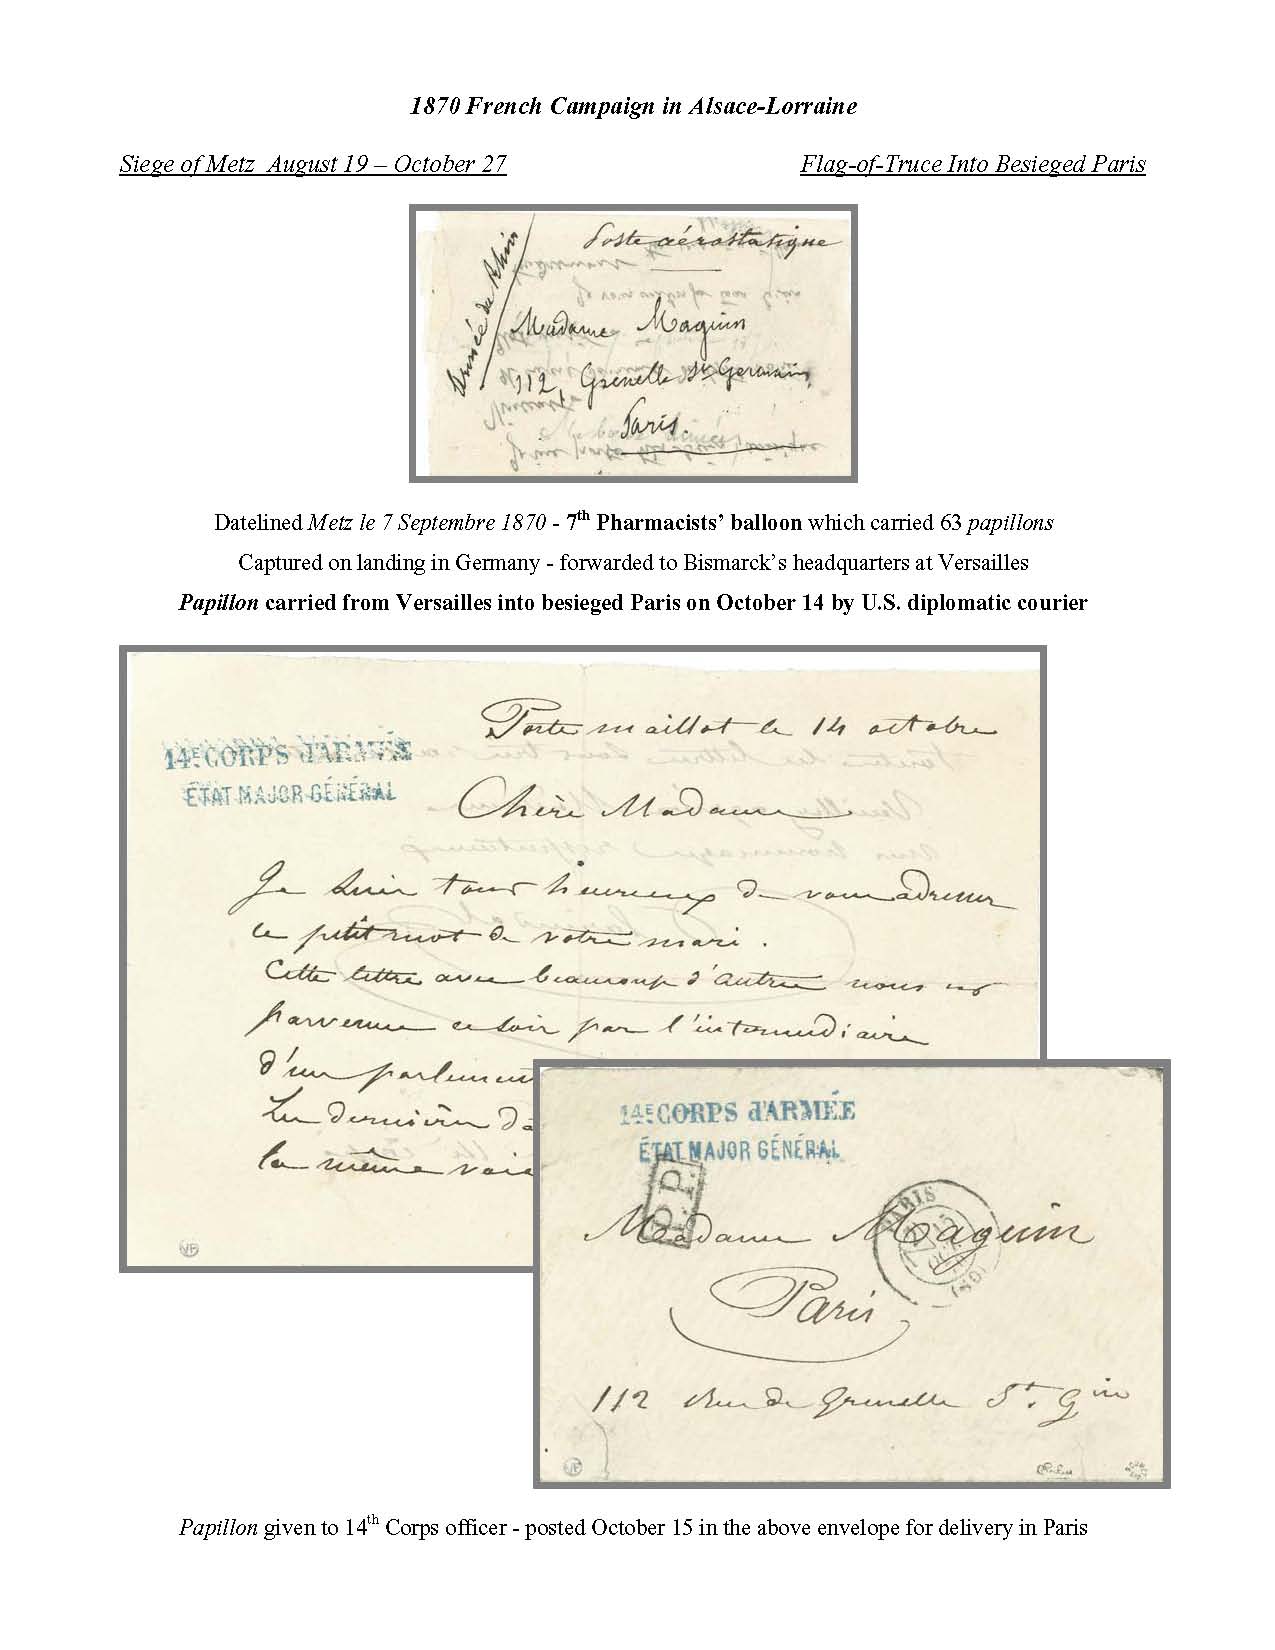 1870 French Campaign in Alsace-Lorraine
Siege of Metz August 19 – October 27
Flag-of-Truce Into Besieged Paris
Poste aérostatique
Armée du Rhin
Madame Maguin
112, Grenelle St Germain,
Paris.
Datelined Metz le 7 Septembre 1870 - 7th Pharmacists' balloon which carried 63 papillons
Captured on landing in Germany - forwarded to Bismarck's headquarters at Versailles
Papillon carried from Versailles into besieged Paris on October 14 by U.S. diplomatic courier
Porte maillot le 14 octobre
14E CORPS d'ARMÉE
ÉTAT MAJOR GÉNÉRAL
Chère Madame
Je suis tout heureux de vous adresser
ce petit mot de votre mari.
Cette lettre avec beaucoup d'autres nous est
parvenue ce soir par l'intermédiaire
d'un parlement
Les dernières da
la même voie
14E CORPS d'ARMÉE
ÉTAT MAJOR GÉNÉRAL
P.P.
PARIS
15
OCT.
(60)
Madame Maguin
Paris
112 Rue de Grenelle St. Gin
Papillon given to 14th Corps officer - posted October 15 in the above envelope for delivery in Paris